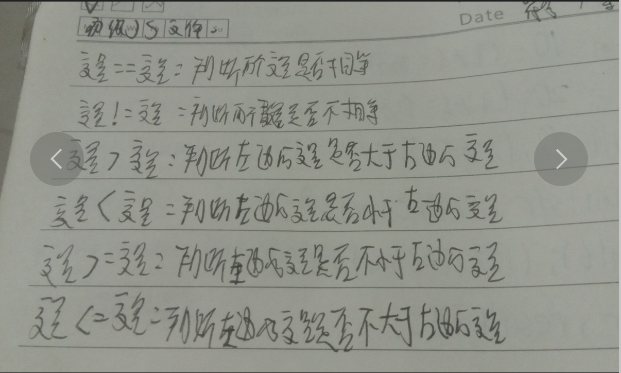 Date
变量==变量=判断两个变量是否相等
变量!=变量=判断两个变量是否不相等
变量>变量=判断左边的变量是否大于右边的变量
变量<变量=判断左边的变量是否小于右边的变量
变量>=变量=判断左边的变量是否不小于右边的变量
变量<=变量=判断左边的变量是否不大于右边的变量